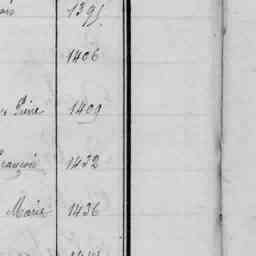 ois 1395
1406
Pierre 1409
François 1432
Marie 1436